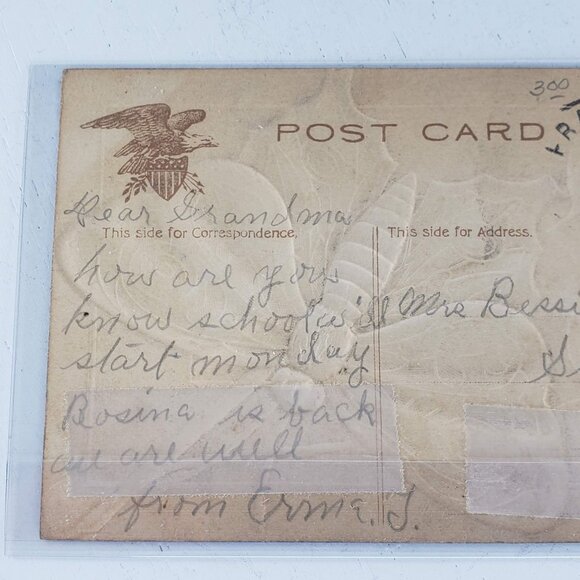 3.00
POST CARD
Dear Grandma
This side for Correspondence.
This side for Address.
how are you
know school will
start monday
Rosina is back
all are well
from Erma. J.
Mrs Bessi
S